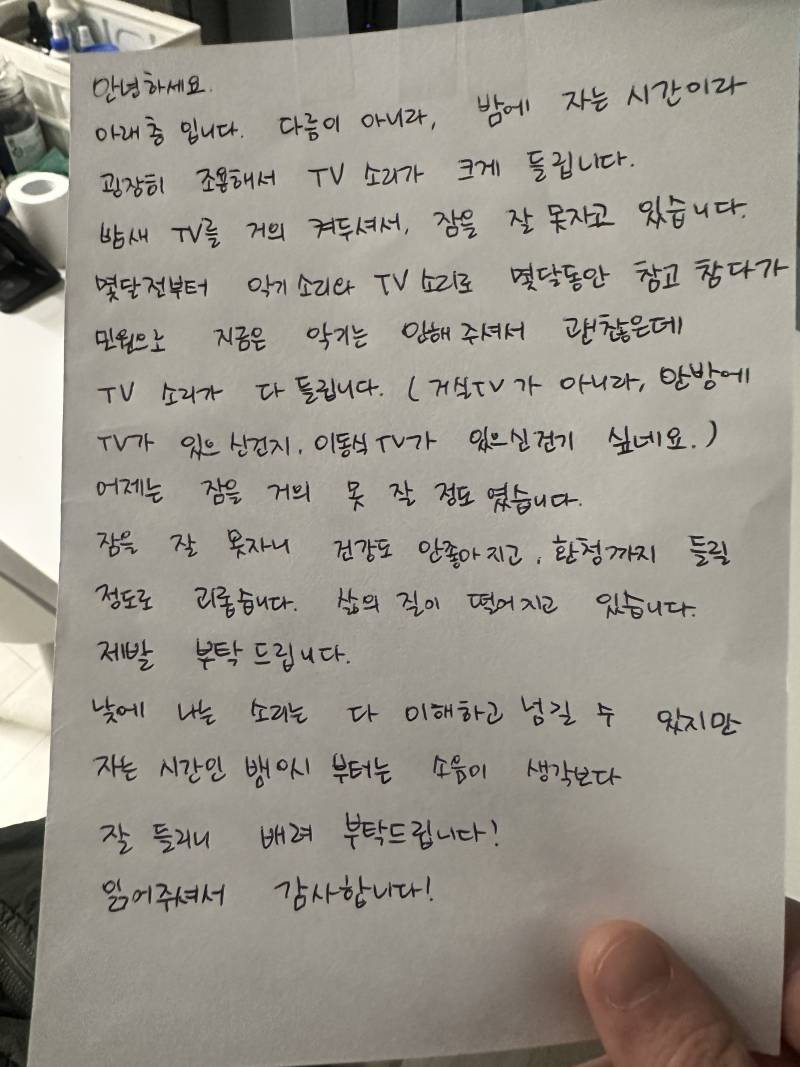 안녕하세요.
아래층 입니다. 다름이 아니라, 밤에 자는 시간이라
굉장히 조용해서 TV 소리가 크게 들립니다.
밤새 TV를 거의 켜두셔서, 잠을 잘 못자고 있습니다.
몇달전부터 악기 소리와 TV 소리로 몇달동안 참고 참다가
민원으로 지금은 악기는 안해 주셔서 괜찮은데
TV 소리가 다 들립니다. (거실TV가 아니라, 안방에
TV가 있으신건지, 이동식 TV가 있으신건가 싶네요.)
어제는 잠을 거의 못 잘 정도 였습니다.
잠을 잘 못자니 건강도 안좋아지고, 환청까지 들릴
정도로 괴롭습니다. 삶의 질이 떨어지고 있습니다.
제발 부탁드립니다.
낮에 나는 소리는 다 이해하고 넘길 수 있지만
자는 시간인 밤 부터는 소음이 생각보다
잘 들리니 배려 부탁드립니다!
읽어주셔서 감사합니다!